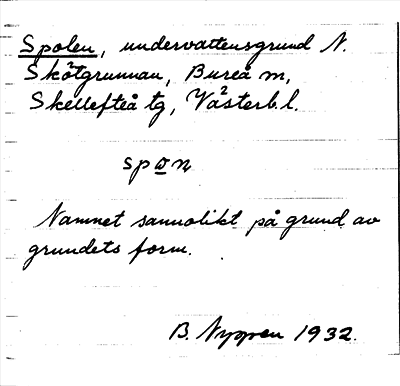 Spolen, undervattensgrund N.
Skötgrunnan, Bureå m,
Skellefteå tg, Västerb.l.
Namnet sannolikt på grund av
grundets form.
B. Nyppen 1932.